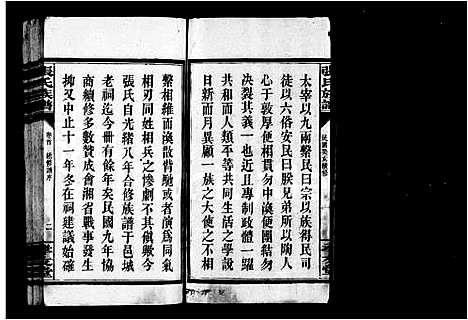 張氏族譜
太宰以九兩繫民曰宗以族得民司
徒以六俗安民曰朕兄弟所以得民
于敦厚便相貫勿中渙便團結勿
決裂其義一也近且專制政體一躍
共和而人類平等共同生活之學說
日新而月異顧一族之大不相
繫相維而渙散背馳或者演爲同氣
相刃同姓相兵之慘劇不其傎歟今
張氏自光緒八年合修族譜于邑城
老祠迄今卌有餘年矣民國九年協
商續修多數贊成會湘省戰事發生
抑又中止十一年冬在祠建議始確
張氏族譜
卷首
二